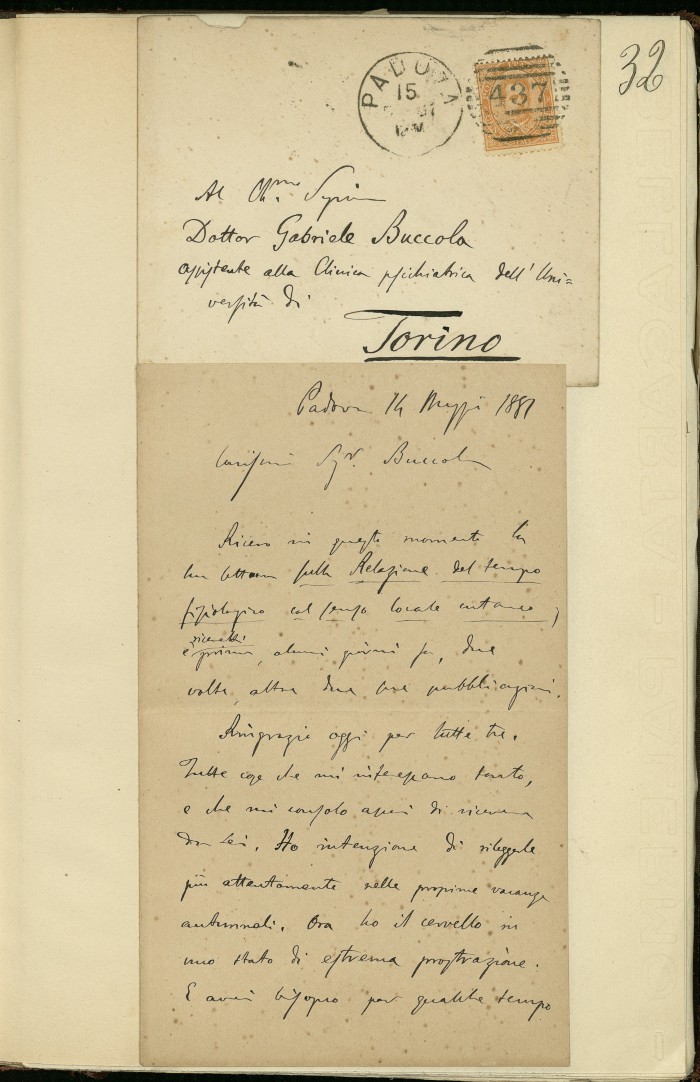 32
PADOVA
15
12 M
437
Al Ch.mo Signor
Dottor Gabriele Buccola
assistente alla Clinica psichiatrica dell' Uni=
versità di
Torino
Padova 14 Maggio 1881
Carissimo Sigr. Buccola
Ricevo in questo momento la
sulla Relazione del tempo
fisiologico col senso locale cutaneo,
e ricevetti
prima, alcuni giorni fa, due
volte, altre due sue pubblicazioni.
Ringrazio oggi per tutte tre.
Tutte cose che mi interessano tanto,
e che mi consolo assai di ricevere
da Lei. Ho intenzione di rileggerle
più attentamente nelle prossime vacanze
autunnali. Ora ho il cervello in
uno stato di estrema prostrazione.
E avrei bisogno per qualche tempo